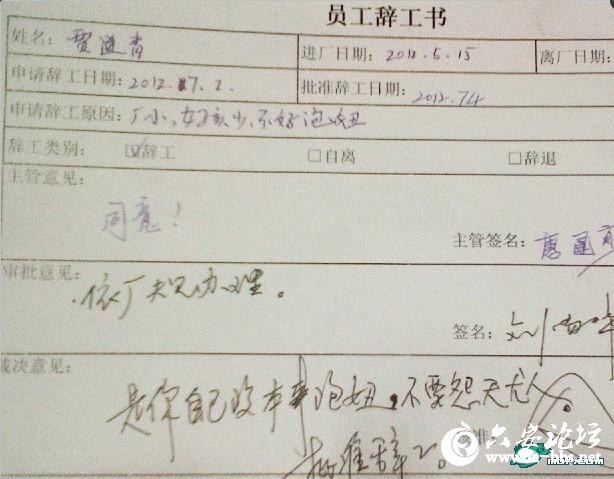 员工辞工书
姓名: 贾 青 进厂日期: 2012.5.15 离厂日期:
申请辞工日期: 2012.7.2. 批准辞工日期: 2012.7.4
申请辞工原因: 厂小,女孩少,不好泡妞
辞工类别: ☑辞工 □自离 □辞退
主管意见:
同意!
主管签名: 唐
审批意见:
依厂规办理。
签名: 刘
裁决意见:
是你自己没本事泡妞,不要怨天尤人。
批准辞工。
准
六安论坛
bbs.net